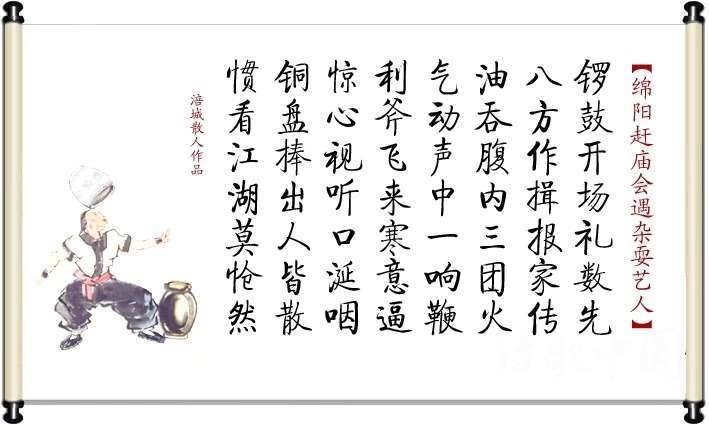 【绵阳赶庙会遇杂耍艺人】
锣鼓开场礼数先
八方作揖报家传
油吞腹内三团火
气动声中一响鞭
利斧飞来寒意逼
惊心视听口涎咽
铜盘捧出人皆散
惯看江湖莫怆然
涪城散人作品